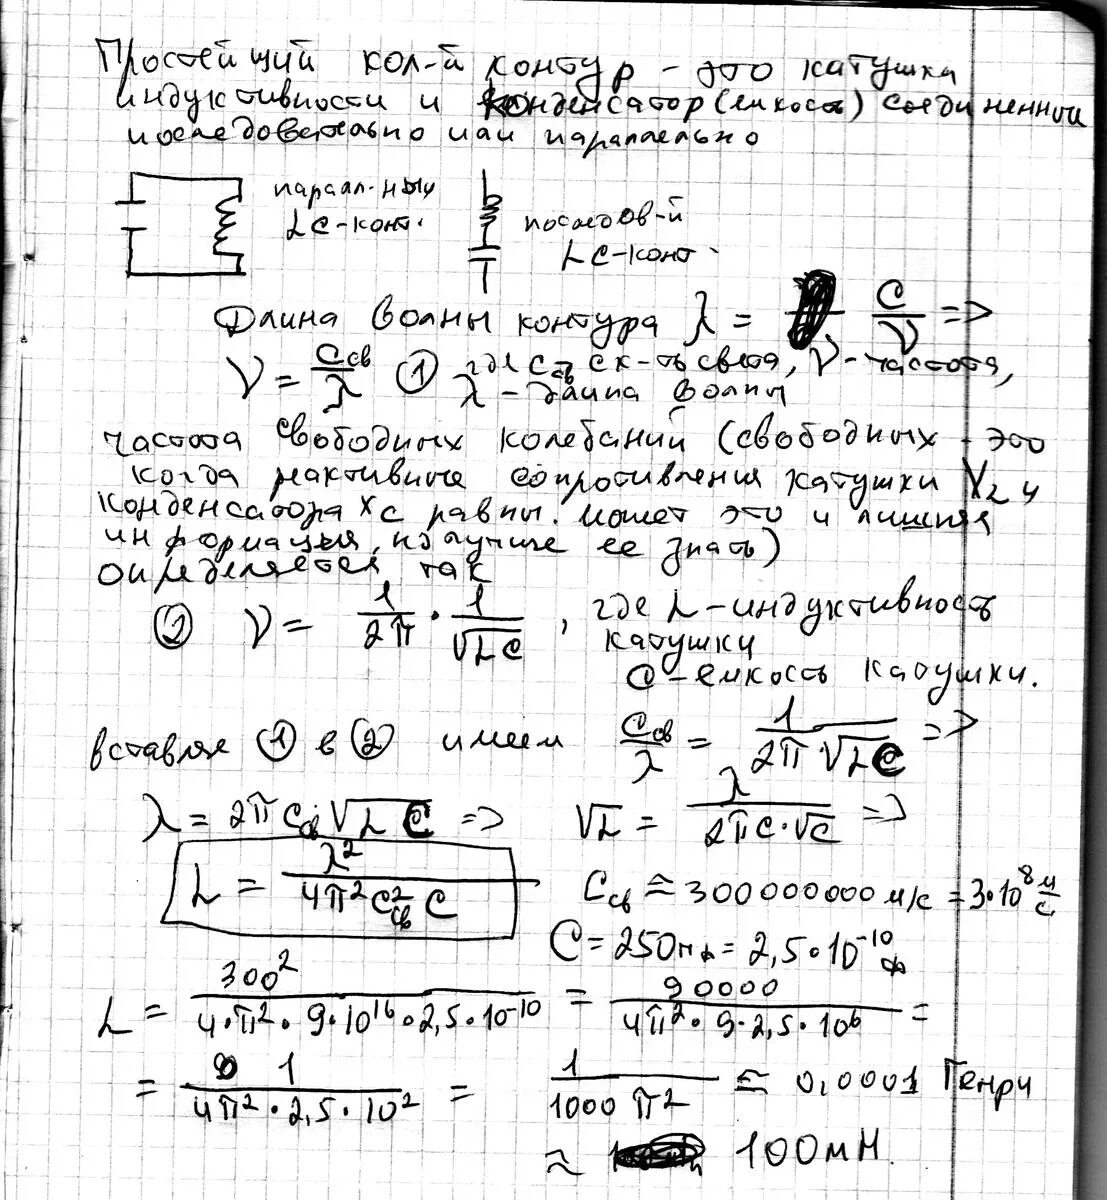 Простейший кол-й контур - это катушка
индуктивности и конденсатор (емкость) соединенной
последовательно или параллельно
паралл-ный
LC-конт.
последов-й
LC-конт.
Длина волны контура λ = C/ν =>
ν = Cсв/λ ① где Cсв ск-ть света, ν - частота,
λ - длина волны
частота свободных колебаний (свободных - это
когда реактивные сопротивления катушки XL и
конденсатора Xc равны. может это и лишняя
информация, но лучше ее знать)
определяется так
② ν = 1/2π · 1/√LC , где L - индуктивность
катушки
C - емкость катушки.
вставляя ① в ② имеем Cсв/λ = 1/2π√LC =>
λ = 2πCсв√LC => √L = λ/2πC·√C =>
L = λ²/4π²Cсв²C
Cсв ≈ 300000000 м/с = 3·10⁸ м/с
C = 250пф = 2,5·10⁻¹⁰ ф
L = 300²/4·π²·9·10¹⁶·2,5·10⁻¹⁰ = 90000/4π²·9·2,5·10⁶ =
= 1/4π²·2,5·10² = 1/1000π² ≈ 0,0001 Генри
≈ 100мН.